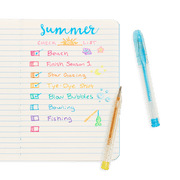 Summer
Beach
Finish Season 2
Star Gazing
Tye Dye
Blow Bubbles
Bowling
Fishing